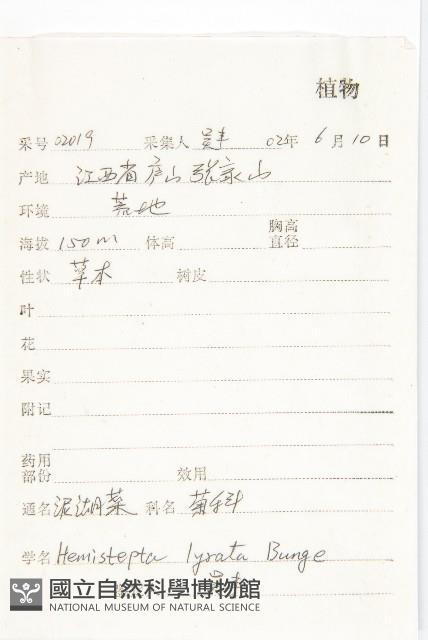 植物
采号 02019 采集人 吴丰 02年 6月10日
产地 江西省庐山张家山
环境 荒地
海拔 150m 体高 胸高直径
性状 草本 树皮
叶
花
果实
附记
药用部份 效用
通名 泥湖菜 科名 菊科
学名 Hemistepta lyrata Bunge
國立自然科學博物館
NATIONAL MUSEUM OF NATURAL SCIENCE